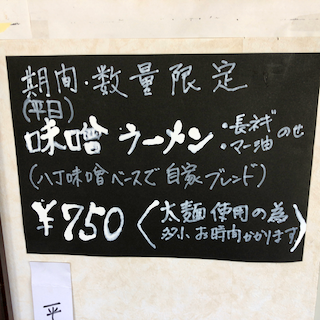 期間・数量限定
(平日)
味噌 ラーメン ・長ネギ ・マー油 のせ
(八丁味噌ベースで自家ブレンド)
¥750 (太麺使用の為 多少お時間かかります)
平